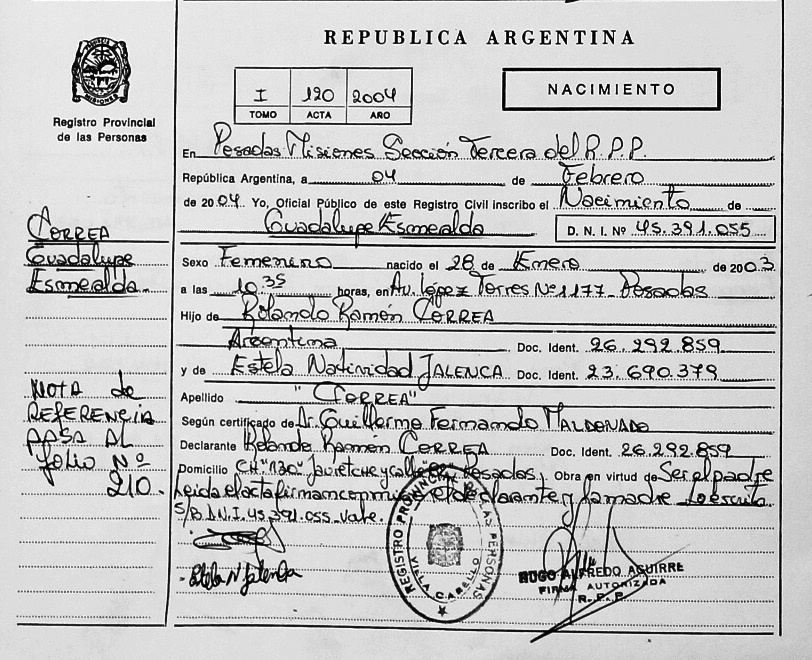 REPUBLICA ARGENTINA
MISIONES
Registro Provincial
de las Personas
I 120 2004
TOMO ACTA AÑO
NACIMIENTO
En Posadas Misiones Sección Tercera del R.P.P.
República Argentina, a 04 de Febrero
de 2004 Yo, Oficial Público de este Registro Civil inscribo el Nacimiento de
Guadalupe Esmeralda D. N. I. Nº 45.391.055
CORREA
Guadalupe
Esmealda.
Sexo Femenino nacido el 28 de Enero de 2003
a las 10.35 horas, en Av. López Torres Nº 1177 Posadas
Hijo de Rolando Ramón CORREA
Argentina Doc. Ident. 26.292.859
y de Estela Natividad JALENCA Doc. Ident. 23.690.379
Apellido "CORREA"
Según certificado de Dr. Guillermo Fernando MALDONADO
Declarante Rolando Ramón CORREA Doc. Ident. 26.292.859
Domicilio CH "130" y calle Posadas Obra en virtud de Ser el padre
Leida el acta firman conmigo el declarante y la madre
S/B D.N.I. 45.391.055 Vale.
NOTA de
REFERENCIA
PASA AL
folio Nº
210.
Estela N Jalenca
REGISTRO PROVINCIAL DE LAS PERSONAS
VILLA CABELLO
HUGO ALFREDO AGUIRRE
FIRMA AUTORIZADA
R.P.P.